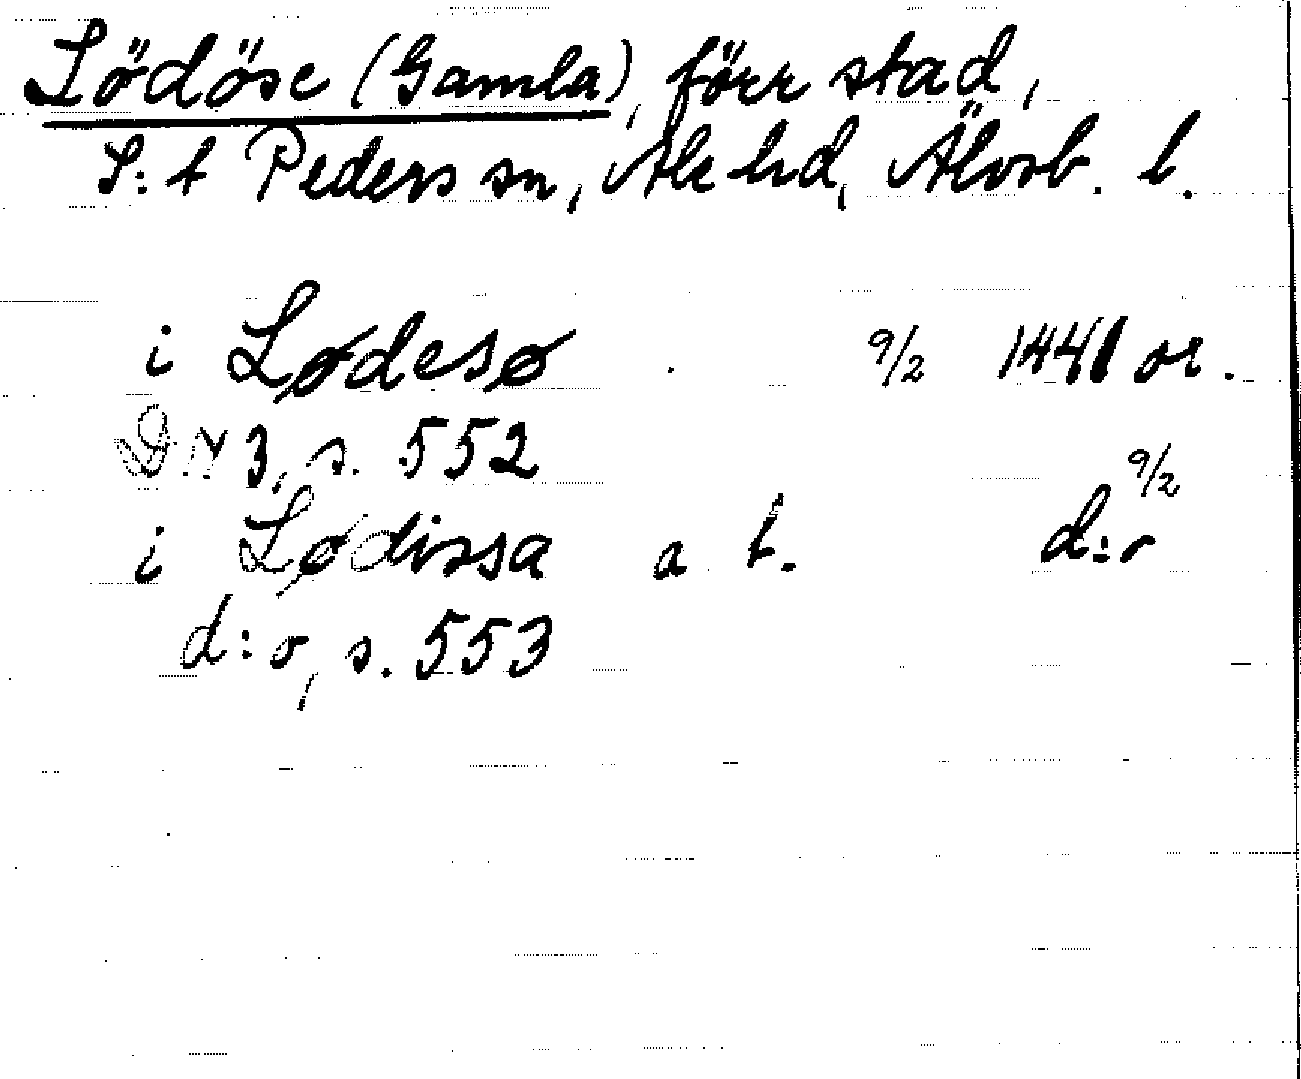 Lödöse (Gamla), förr stad,
S:t Peders sn, Ale hd, Älvsb. l.
i Lødesø 9/2 1441 or.
DN 3, s. 552
i Lødissa a t. d:o 9/2
d:o, s. 553